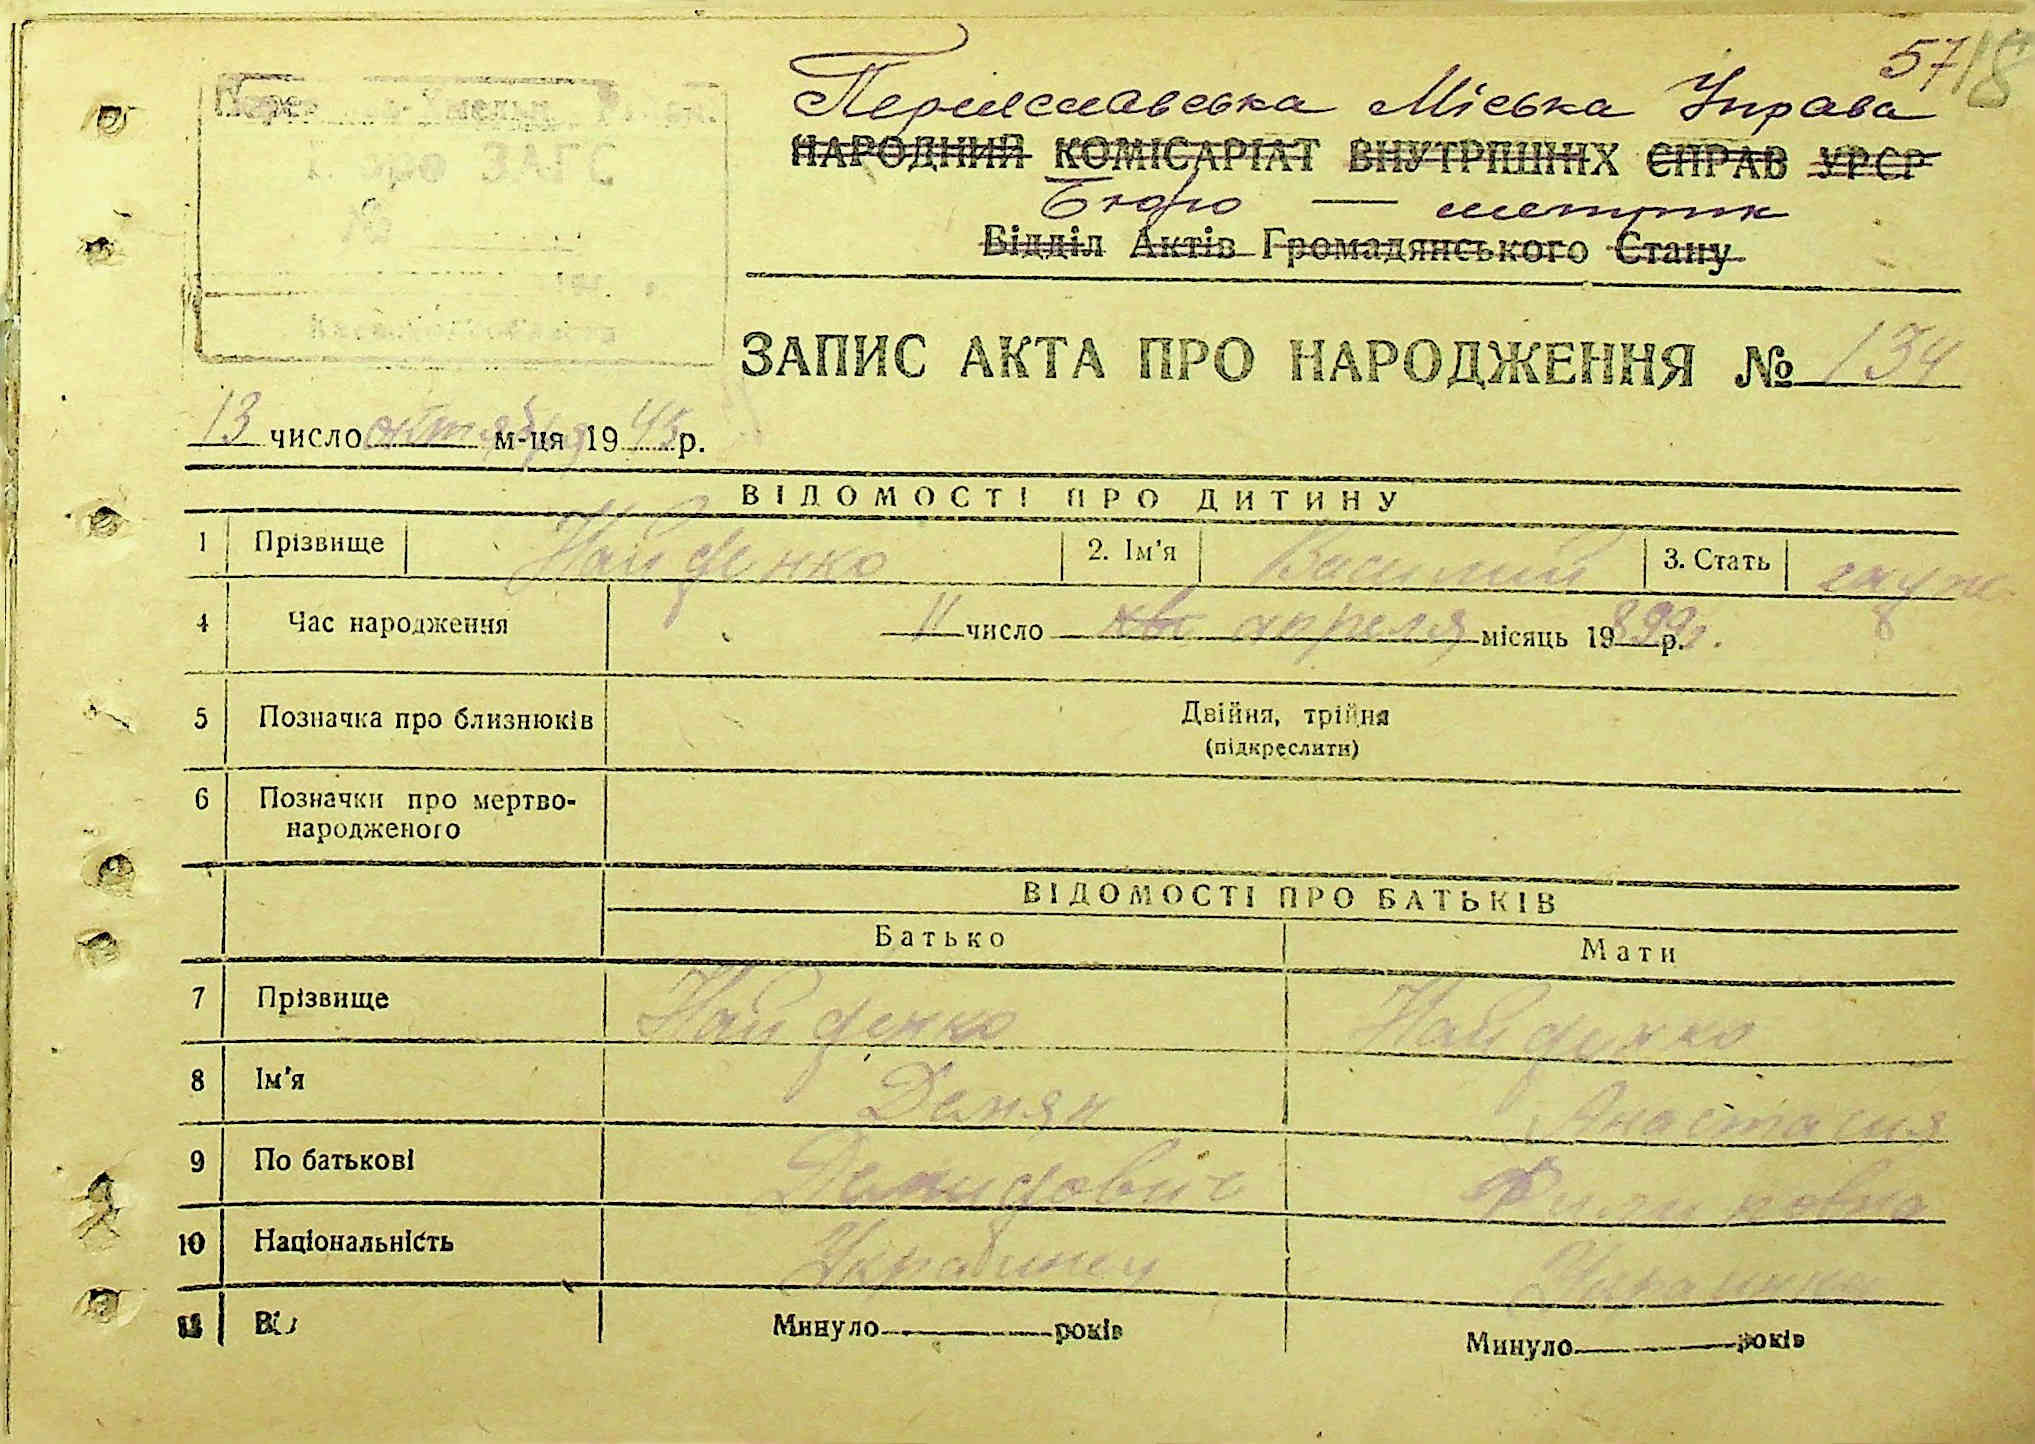 57 18
Переяславська Міська Управа
НАРОДНИЙ КОМІСАРІАТ ВНУТРІШНІХ СПРАВ УРСР
Бюро — метрик
Відділ Актів Громадянського Стану
ЗАПИС АКТА ПРО НАРОДЖЕННЯ № 134
13 число октября м-ця 1943 р.
ВІДОМОСТІ ПРО ДИТИНУ
1 Прізвище Найденко 2. Ім'я Василий 3. Стать муж.
4 Час народження 11 число кві апреля місяць 19 899 р.
5 Позначка про близнюків Двійня, трійня
(підкреслити)
6 Позначки про мертво-
народженого
ВІДОМОСТІ ПРО БАТЬКІВ
Батько Мати
7 Прізвище Найденко Найденко
8 Ім'я Демян Анастасия
9 По батькові Демидович Филиповна
10 Національність Украинец Украинка
11 Минуло років Минуло років